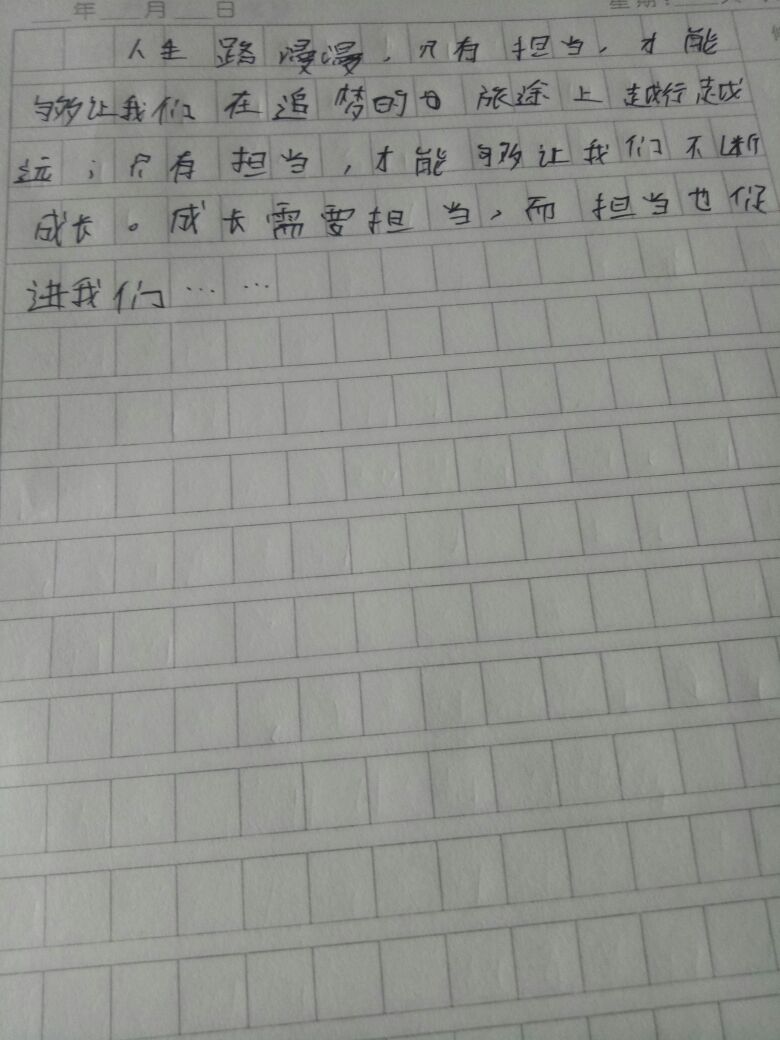 年 月 日 星期:
人生路漫漫,只有担当,才能
够让我们在追梦的旅途上越行越
远;只有担当,才能够让我们不断
成长。成长需要担当,而担当也促
进我们……